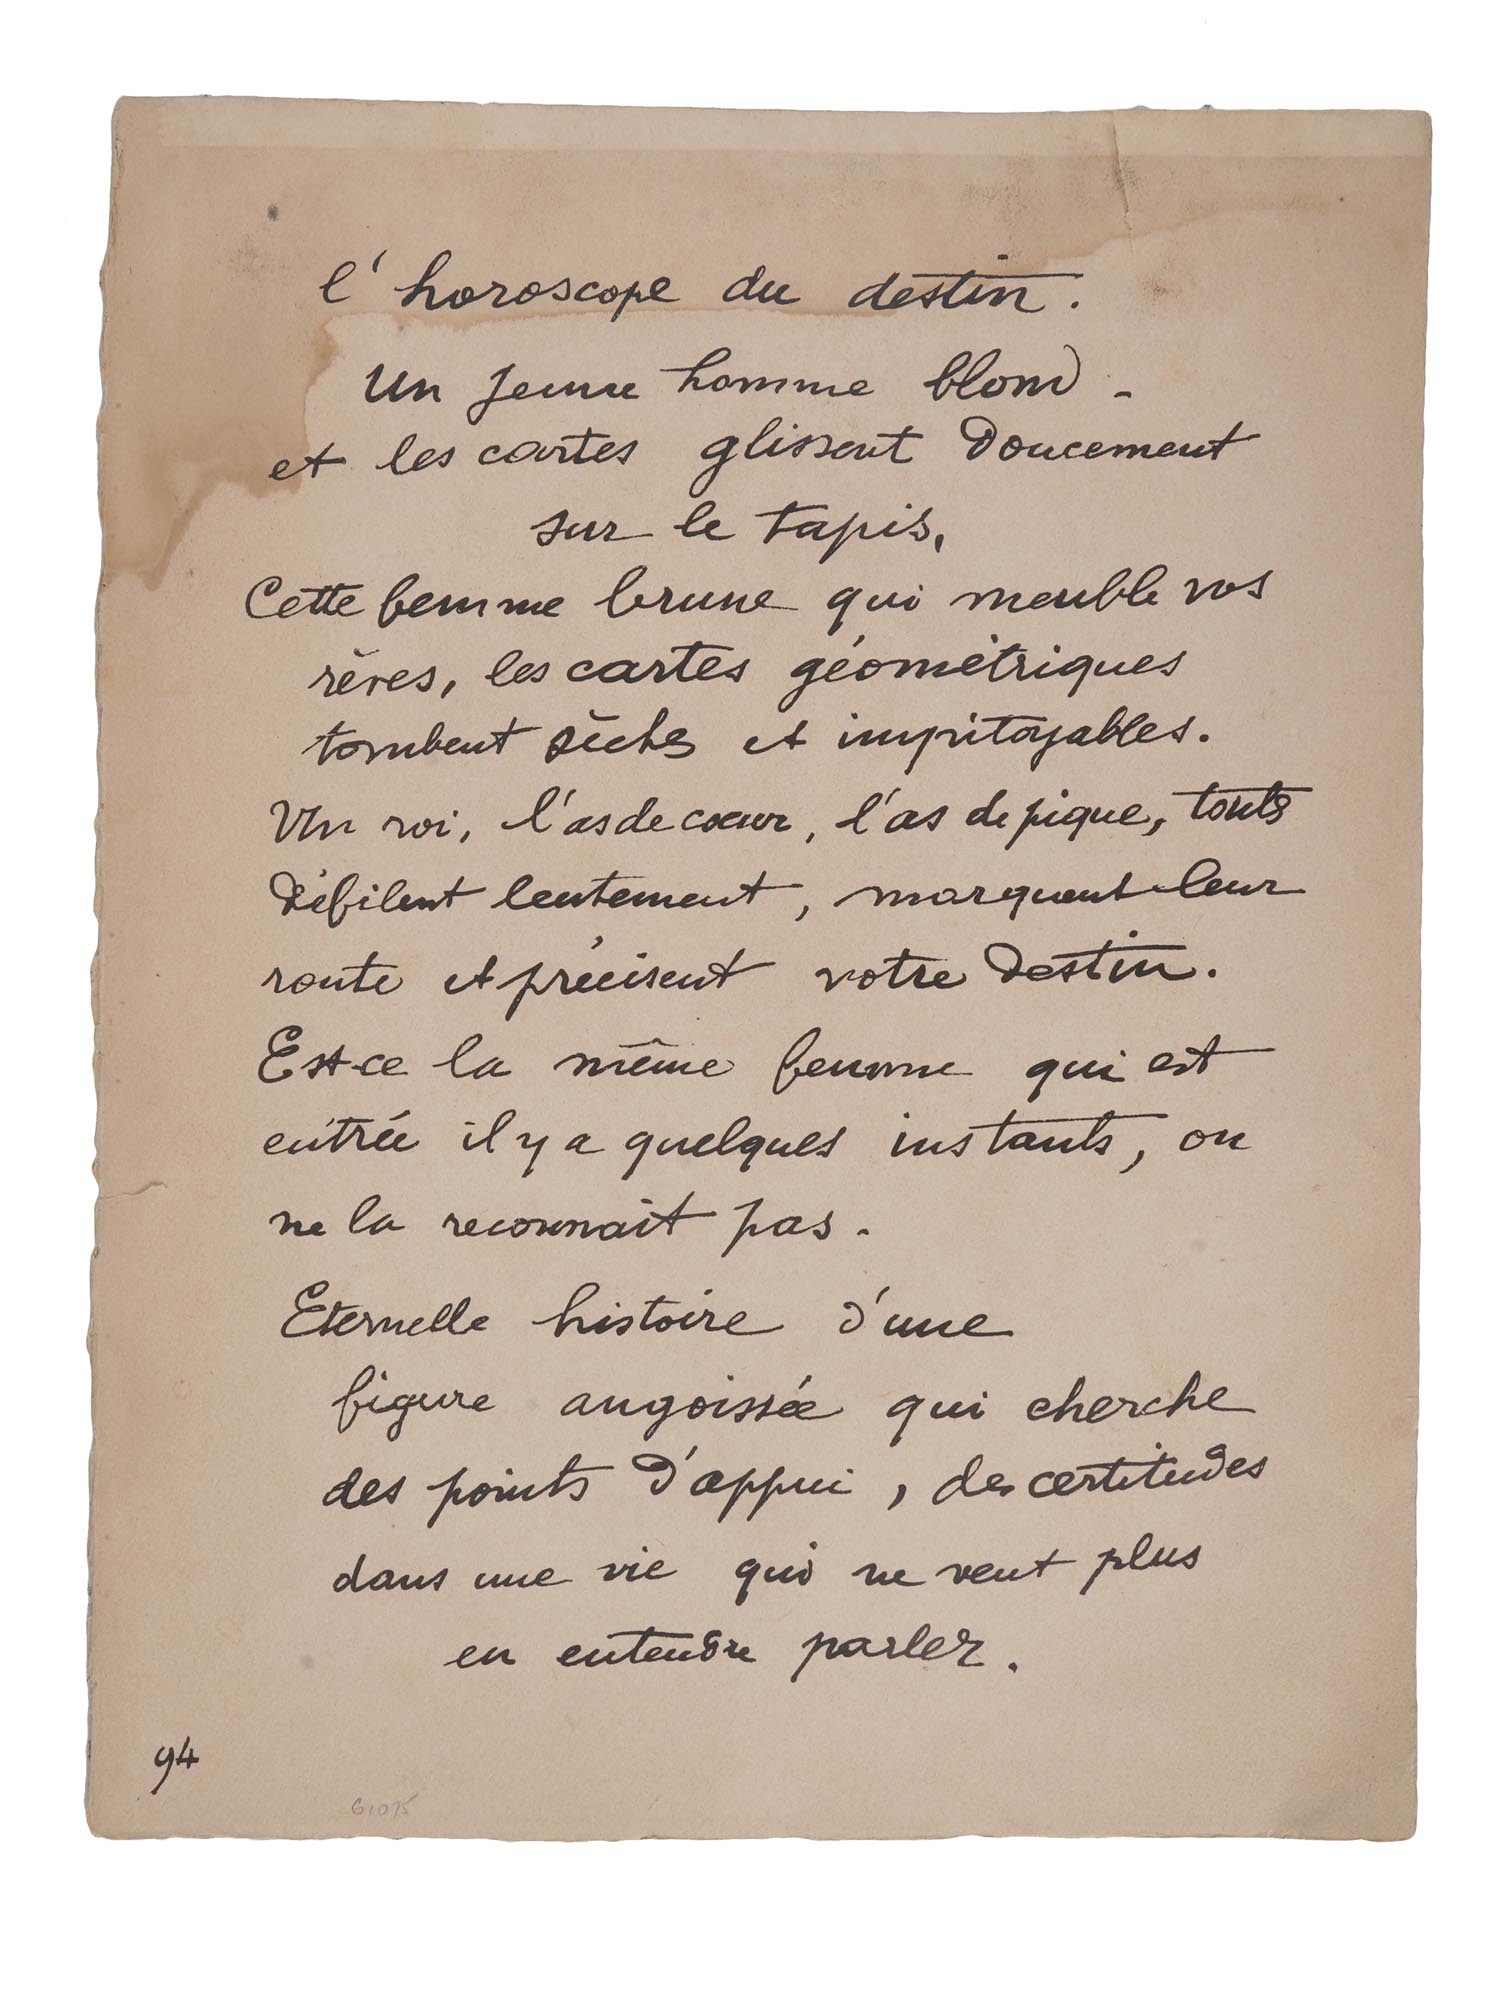 l'horoscope du destin.
Un jeune homme blond -
et les cartes glissent doucement
sur le tapis,
Cette femme brune qui meuble vos
rêves, les cartes géométriques
tombent sèches et impitoyables.
Un roi, l'as de cœur, l'as de pique, touts
défilent lentement, marquent leur
route et précisent votre destin.
Est-ce la même femme qui est
entrée il y a quelques instants, on
ne la reconnait pas.
Eternelle histoire d'une
figure angoissée qui cherche
des points d'appui, des certitudes
dans une vie qui ne veut plus
en entendre parler.
94